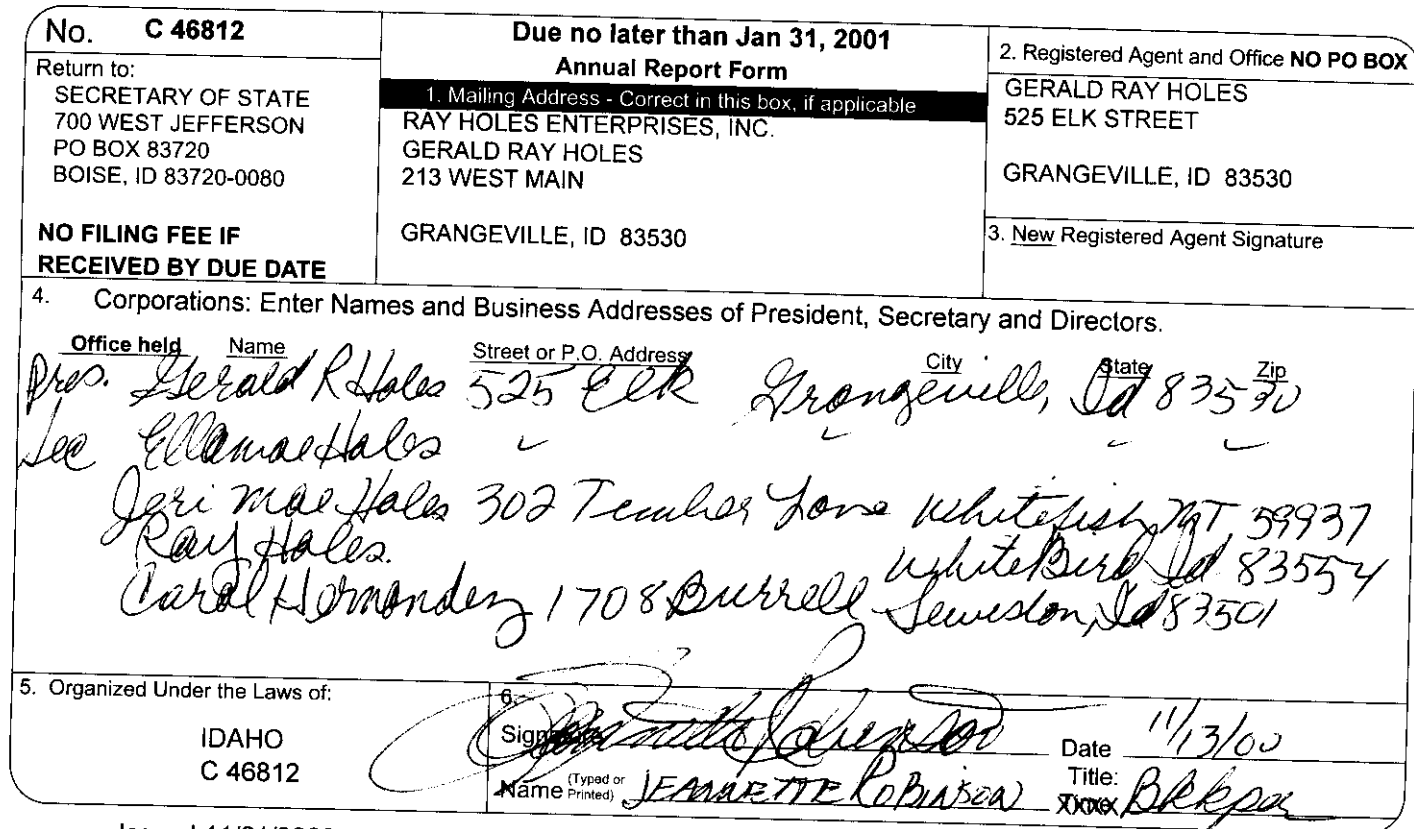 No. C 46812
Return to:
SECRETARY OF STATE
700 WEST JEFFERSON
PO BOX 83720
BOISE, ID 83720-0080
NO FILING FEE IF
RECEIVED BY DUE DATE
Due no later than Jan 31, 2001
Annual Report Form
1. Mailing Address - Correct in this box, if applicable
RAY HOLES ENTERPRISES, INC.
GERALD RAY HOLES
213 WEST MAIN
GRANGEVILLE, ID 83530
2. Registered Agent and Office NO PO BOX
GERALD RAY HOLES
525 ELK STREET
GRANGEVILLE, ID 83530
3. New Registered Agent Signature
4. Corporations: Enter Names and Business Addresses of President, Secretary and Directors.
Office held Name Street or P.O. Address City State Zip
Pres. Gerald R Holes 525 Elk Grangeville, Id 83530
Sec Ellamae Holes
Jeri Mae Holes 302 Lane Whitefish, MT 59937
Ray Holes. White Bird Id 83554
Carol Hernandez 1708 Burrell Lewiston, Id 83501
5. Organized Under the Laws of:
IDAHO
C 46812
6.
Signature Jeannette Robinson Date 11/13/00
Name (Typed or Printed) JEANNETTE ROBINSON Title: Bkkper